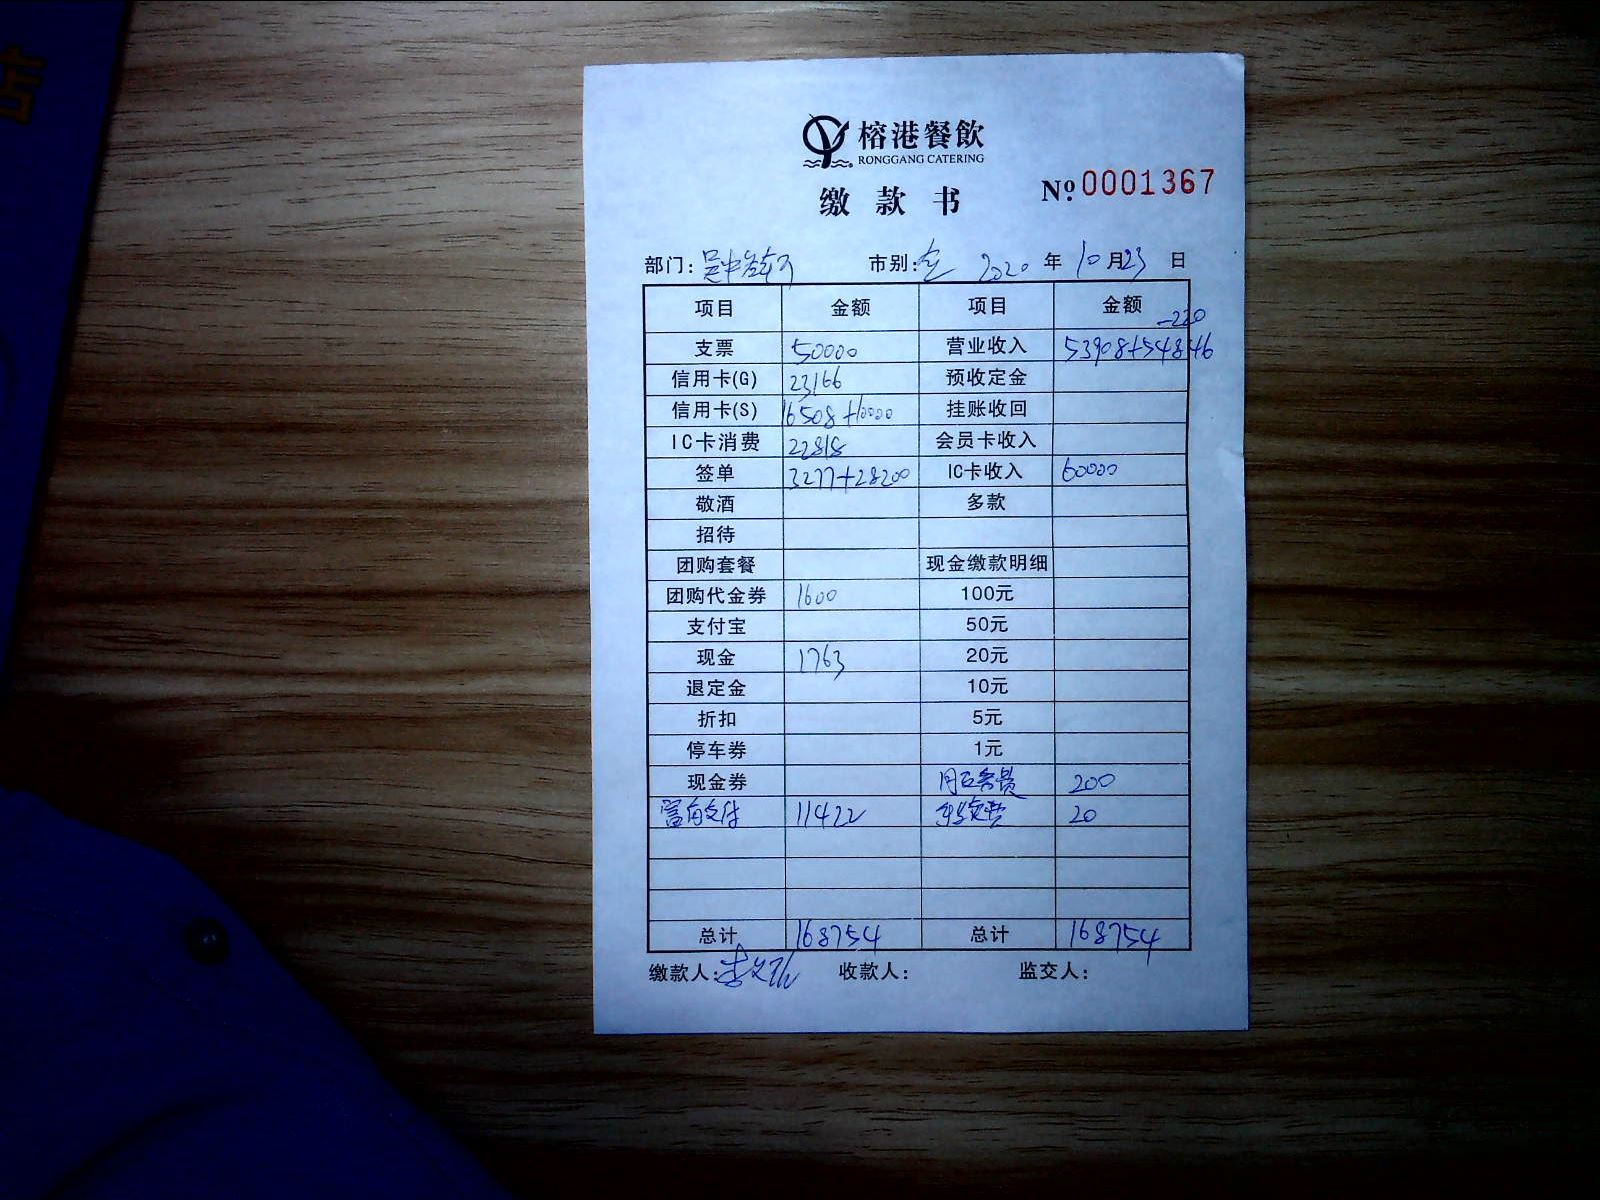 榕港餐飲
RONGGANG CATERING
缴款书
№ 0001367
部门: 市别:全 2020 年 10 月 23 日
项目 金额 项目 金额
-220
支票 50000 营业收入 53908+54846
信用卡(G) 23166 预收定金
信用卡(S) 16508+10000 挂账收回
IC卡消费 22818 会员卡收入
签单 3277+28200 IC卡收入 60000
敬酒 多款
招待
团购套餐 现金缴款明细
团购代金券 1600 100元
支付宝 50元
现金 1763 20元
退定金 10元
折扣 5元
停车券 1元
现金券 200
富友支付 11422 20
总计 168754 总计 168754
缴款人: 收款人: 监交人: